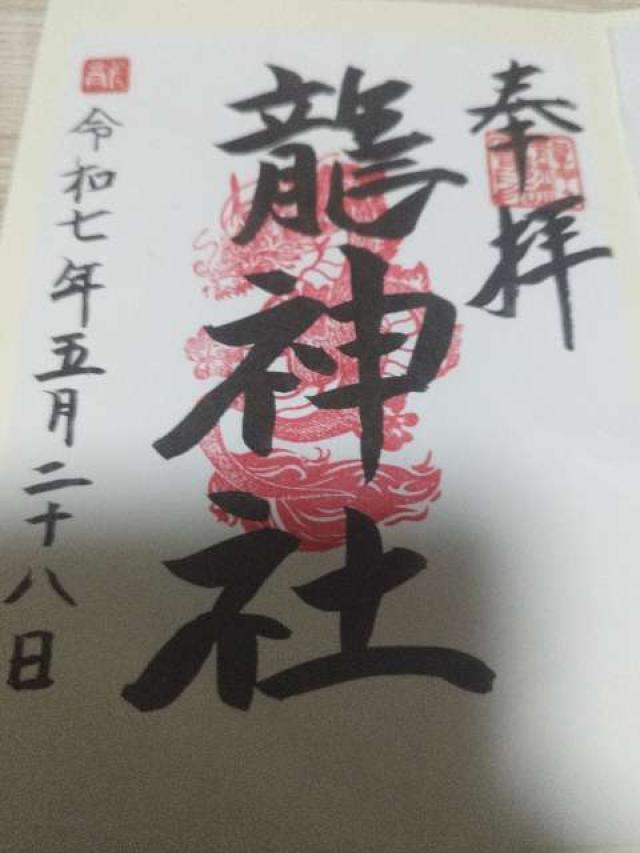 奉拝
龍神社
令和七年五月二十八日